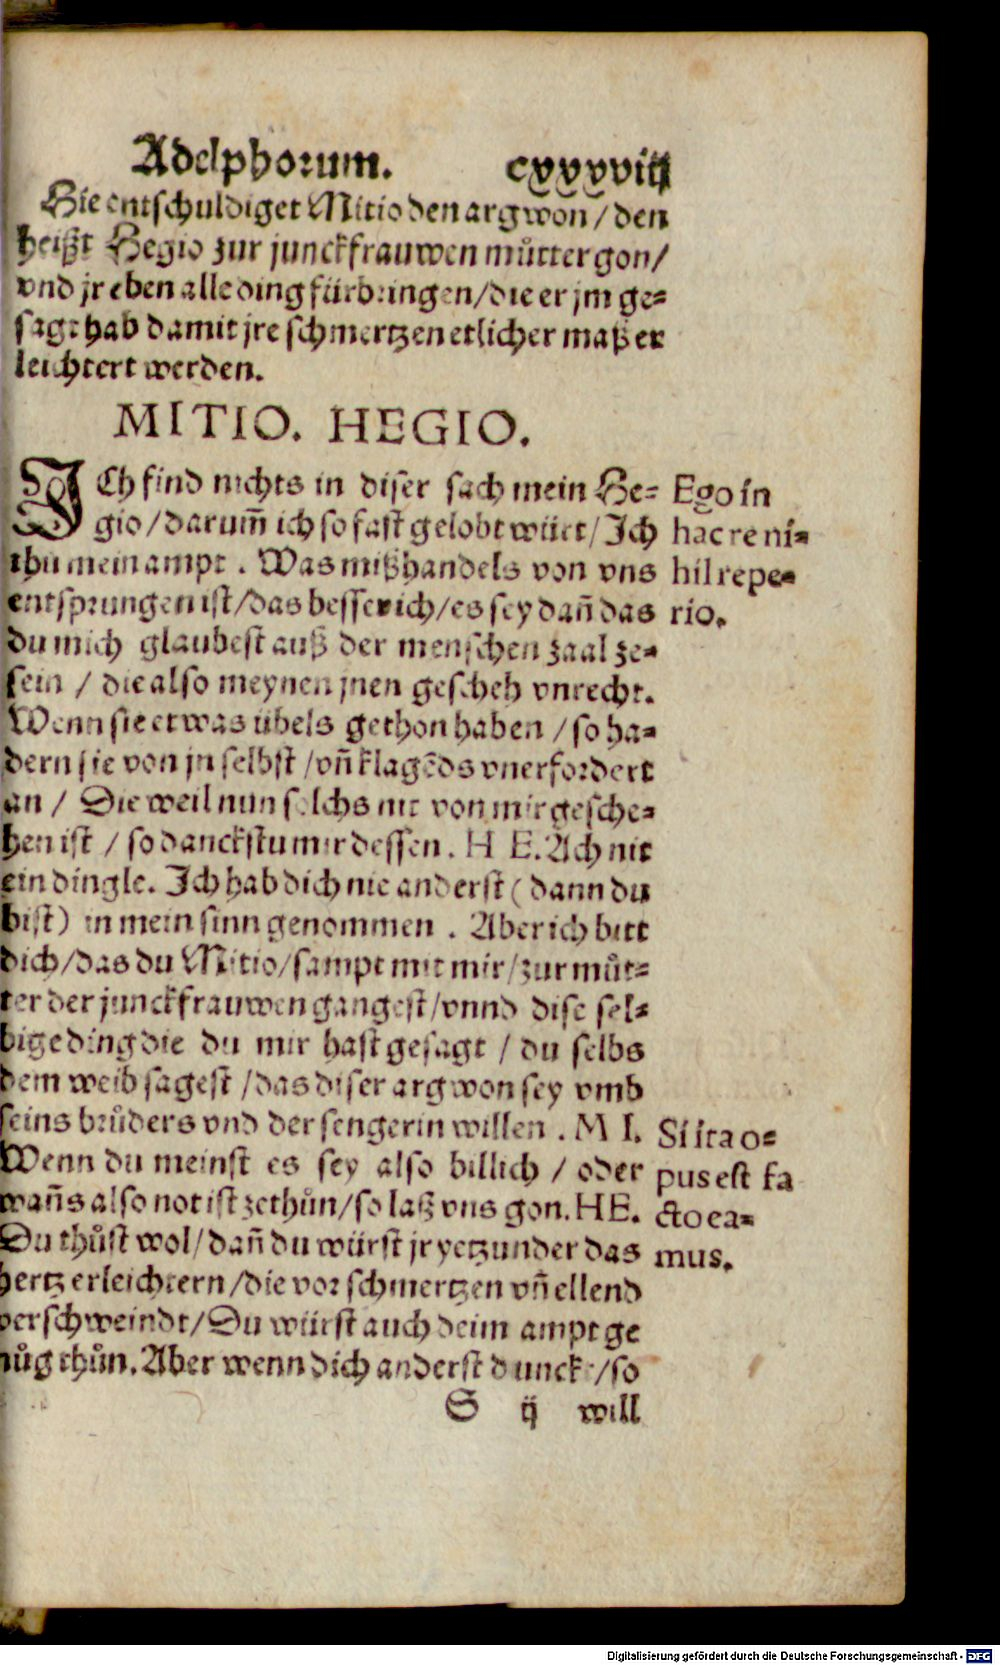 Adelphorum. cxxxviij
Hie entschuldiget Mitio den argwon / den
heißt Hegio zur junckfrauwen můtter gon /
vnd jr eben alle ding fürbringen / die er jm ge⸗
sagt hab damit jre schmertzen etlicher maß er
leichtert werden.
MITIO. HEGIO.
ICh find nichts in diser sach mein He⸗
gio / darum̄ ich so fast gelobt würt / Ich
thu mein ampt . Was mißhandels von vns
entsprungen ist / das besser ich / es sey dañ das
du mich glaubest auß der menschen zaal ze⸗
sein / die also meynen jnen gescheh vnrecht.
Wenn sie etwas übels gethon haben / so ha⸗
dern sie von jn selbst / vñ klagēds vnerfordert
an / Die weil nun solchs nit von mir gesche⸗
hen ist / so danckstu mir dessen . H E. Ach nit
ein dingle. Ich hab dich nie anderst ( dann du
bist ) in mein sinn genommen . Aber ich bitt
dich / das du Mitio / sampt mit mir / zur můt⸗
ter der junckfrauwen gangest / vnnd dise sel⸗
bige ding die du mir hast gesagt / du selbs
dem weib sagest / das diser argwon sey vmb
seins brůders vnd der sengerin willen . M I.
Wenn du meinst es sey also billich / oder
wañs also not ist zethůn / so laß vns gon. HE.
Du thůst wol / dañ du würst jr yetzunder das
hertz erleichtern / die vor schmertzen vñ ellend
verschweindt / Du würst auch deim ampt ge
nůg thůn. Aber wenn dich anderst dunckt / so
S ij will
Ego in
hac re ni⸗
hil repe⸗
rio.
Si ita o⸗
pus est fa
cto ea⸗
mus.
Digitalisierung gefördert durch die Deutsche Forschungsgemeinschaft - DFG